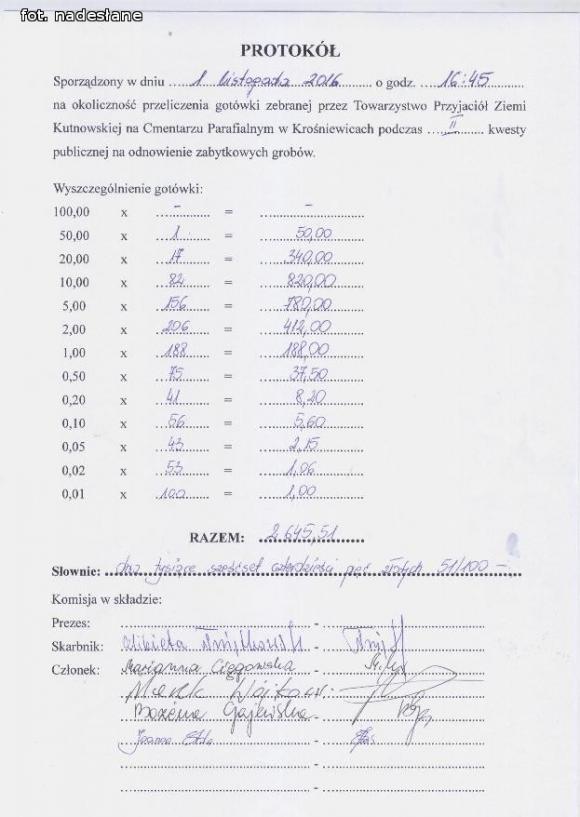 fot. nadesłane
PROTOKÓŁ
Sporządzony w dniu 1 listopada 2016 o godz. 16:45
na okoliczność przeliczenia gotówki zebranej przez Towarzystwo Przyjaciół Ziemi
Kutnowskiej na Cmentarzu Parafialnym w Krośniewicach podczas II kwesty
publicznej na odnowienie zabytkowych grobów.
Wyszczególnienie gotówki:
100,00 x - = -
50,00 x 1 = 50,00
20,00 x 17 = 340,00
10,00 x 82 = 820,00
5,00 x 156 = 780,00
2,00 x 206 = 412,00
1,00 x 188 = 188,00
0,50 x 75 = 37,50
0,20 x 41 = 8,20
0,10 x 56 = 5,60
0,05 x 43 = 2,15
0,02 x 53 = 1,06
0,01 x 100 = 1,00
RAZEM: 2.645,51
Słownie: dwa tysiące sześćset czterdzieści pięć złotych 51/100 -
Komisja w składzie:
Prezes: -
Skarbnik: Elżbieta -
Członek: Marianna Cięgowska -
Marek Wójkow
Bożena Gajewska -
Joanna -
-
-